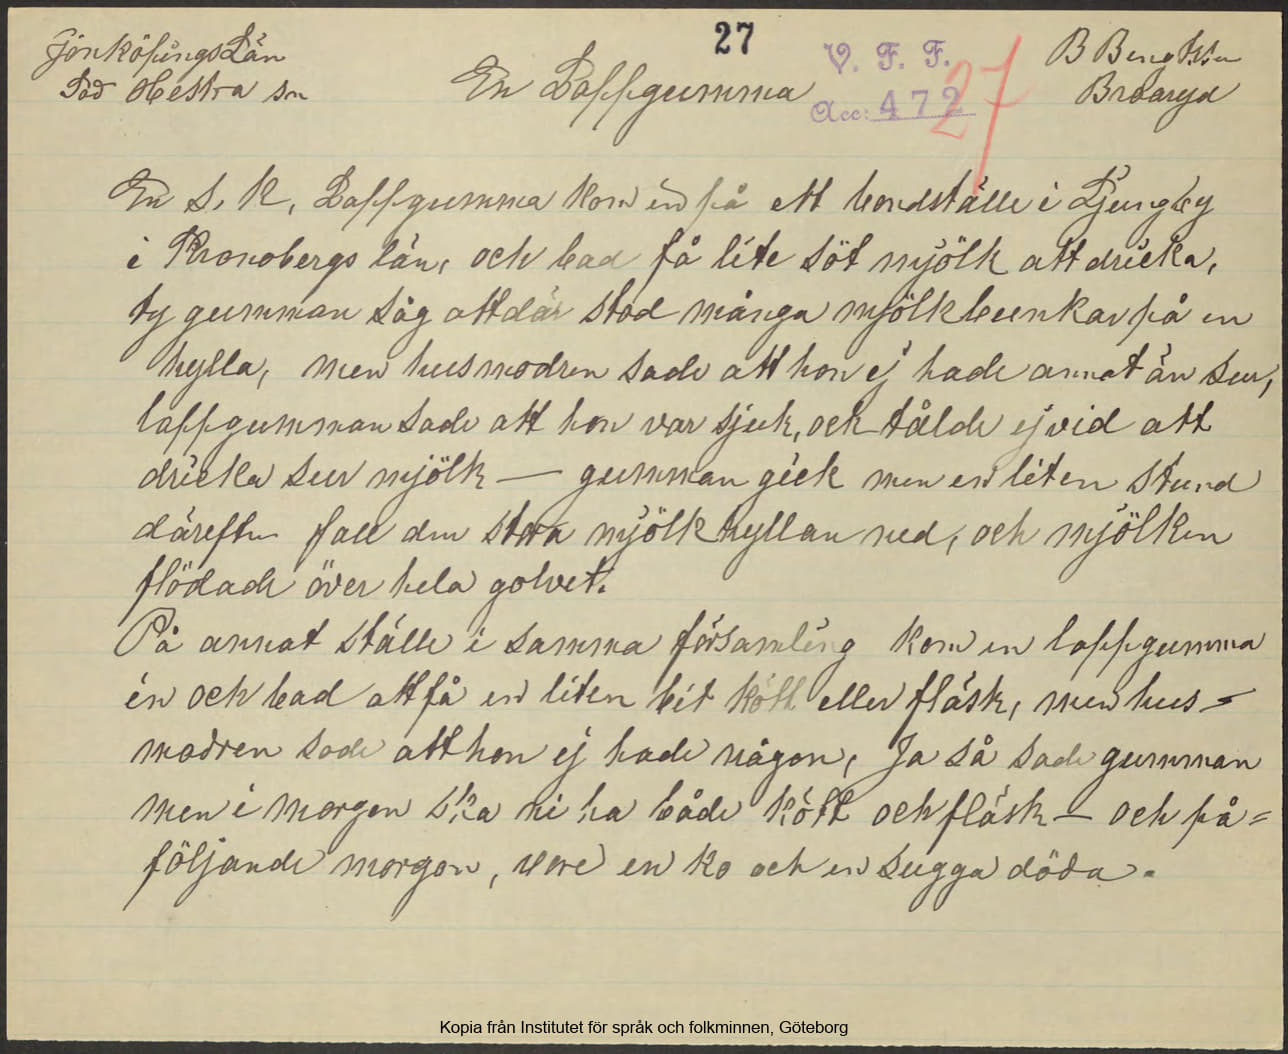 Jönköpings Län
Söd Hestra sn
27
En Lappgumma
V. F. F.
Acc: 472
27
B Bengtsson
Broaryd
En s. k. Lappgumma kom in på ett bondställe i Ljungby
i Kronobergs län, och bad få lite söt mjölk att dricka,
ty gumman såg att där stod många mjölkbunkar på en
hylla, men husmodren sade att hon ej hade annat än sur,
lappgumman sade att hon var sjuk, och tålde ej vid att
dricka sur mjölk — gumman gick men en liten stund
därefter fall den stora mjölkhyllan ned, och mjölken
flödade över hela golvet.
På annat ställe i samma församling kom en lappgumma
in och bad att få en liten bit kött eller fläsk, men hus-
modren sade att hon ej hade någon, Ja så sade gumman
men i morgon ska ni ha både kött och fläsk — och på=
följande morgon, vore en ko och en sugga döda.
Kopia från Institutet för språk och folkminnen, Göteborg